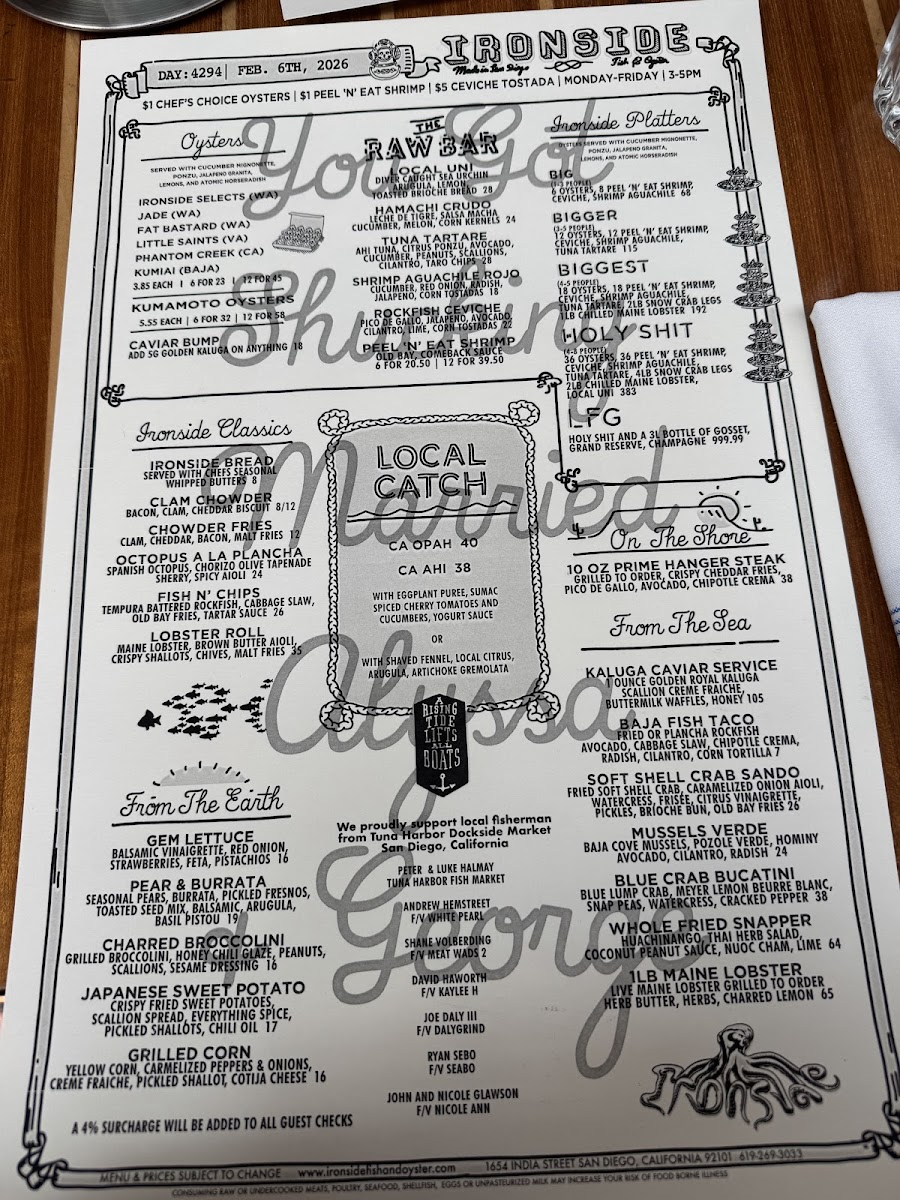 DAY:4294| FEB. 6TH, 2026
IRONSIDE
Made in San Diego
Fish & Oyster
$1 CHEF'S CHOICE OYSTERS | $1 PEEL 'N' EAT SHRIMP | $5 CEVICHE TOSTADA | MONDAY-FRIDAY | 3-5PM
You Got
Shucking
Married
Alyssa
& George
Oysters
SERVED WITH CUCUMBER MIGNONETTE,
PONZU, JALAPENO GRANITA,
LEMONS, AND ATOMIC HORSERADISH
IRONSIDE SELECTS (WA)
JADE (WA)
FAT BASTARD (WA)
LITTLE SAINTS (VA)
PHANTOM CREEK (CA)
KUMIAI (BAJA)
3.85 EACH | 6 FOR 23 | 12 FOR 45
KUMAMOTO OYSTERS
5.55 EACH | 6 FOR 32 | 12 FOR 58
CAVIAR BUMP
ADD 5G GOLDEN KALUGA ON ANYTHING 18
THE
RAW BAR
LOCAL UNI
DIVER CAUGHT SEA URCHIN
ARUGULA, LEMON,
TOASTED BRIOCHE BREAD 28
HAMACHI CRUDO
LECHE DE TIGRE, SALSA MACHA
CUCUMBER, MELON, CORN KERNELS 24
TUNA TARTARE
AHI TUNA, CITRUS PONZU, AVOCADO,
CUCUMBER, PEANUTS, SCALLIONS,
CILANTRO, TARO CHIPS 28
SHRIMP AGUACHILE ROJO
CUCUMBER, RED ONION, RADISH,
JALAPENO, CORN TOSTADAS 18
ROCKFISH CEVICHE
PICO DE GALLO, JALAPENO, AVOCADO,
CILANTRO, LIME, CORN TOSTADAS 22
PEEL 'N' EAT SHRIMP
OLD BAY, COMEBACK SAUCE
6 FOR 20.50 | 12 FOR 39.50
Ironside Platters
OYSTERS SERVED WITH CUCUMBER MIGNONETTE,
PONZU, JALAPENO GRANITA,
LEMONS, AND ATOMIC HORSERADISH
BIG
(1-3 PEOPLE)
6 OYSTERS, 8 PEEL 'N' EAT SHRIMP,
CEVICHE, SHRIMP AGUACHILE 68
BIGGER
(3-5 PEOPLE)
12 OYSTERS, 12 PEEL 'N' EAT SHRIMP,
CEVICHE, SHRIMP AGUACHILE,
TUNA TARTARE 115
BIGGEST
(4-5 PEOPLE)
18 OYSTERS, 18 PEEL 'N' EAT SHRIMP,
CEVICHE, SHRIMP AGUACHILE,
TUNA TARTARE, 2LB SNOW CRAB LEGS
1LB CHILLED MAINE LOBSTER 192
HOLY SHIT
(4-8 PEOPLE)
36 OYSTERS, 36 PEEL 'N' EAT SHRIMP,
CEVICHE, SHRIMP AGUACHILE,
TUNA TARTARE, 4LB SNOW CRAB LEGS
2LB CHILLED MAINE LOBSTER,
LOCAL UNI 383
LFG
HOLY SHIT AND A 3L BOTTLE OF GOSSET,
GRAND RESERVE, CHAMPAGNE 999.99
Ironside Classics
IRONSIDE BREAD
SERVED WITH CHEFS SEASONAL
WHIPPED BUTTERS 8
CLAM CHOWDER
BACON, CLAM, CHEDDAR BISCUIT 8/12
CHOWDER FRIES
CLAM, CHEDDAR, BACON, MALT FRIES 12
OCTOPUS A LA PLANCHA
SPANISH OCTOPUS, CHORIZO OLIVE TAPENADE
SHERRY, SPICY AIOLI 24
FISH N' CHIPS
TEMPURA BATTERED ROCKFISH, CABBAGE SLAW,
OLD BAY FRIES, TARTAR SAUCE 26
LOBSTER ROLL
MAINE LOBSTER, BROWN BUTTER AIOLI,
CRISPY SHALLOTS, CHIVES, MALT FRIES 35
LOCAL
CATCH
CA OPAH 40
CA AHI 38
WITH EGGPLANT PUREE, SUMAC
SPICED CHERRY TOMATOES AND
CUCUMBERS, YOGURT SAUCE
OR
WITH SHAVED FENNEL, LOCAL CITRUS,
ARUGULA, ARTICHOKE GREMOLATA
A
RISING
TIDE
LIFTS
ALL
BOATS
On The Shore
10 OZ PRIME HANGER STEAK
GRILLED TO ORDER, CRISPY CHEDDAR FRIES,
PICO DE GALLO, AVOCADO, CHIPOTLE CREMA 38
From The Sea
KALUGA CAVIAR SERVICE
1 OUNCE GOLDEN ROYAL KALUGA
SCALLION CREME FRAICHE,
BUTTERMILK WAFFLES, HONEY 105
BAJA FISH TACO
FRIED OR PLANCHA ROCKFISH
AVOCADO, CABBAGE SLAW, CHIPOTLE CREMA,
RADISH, CILANTRO, CORN TORTILLA 7
SOFT SHELL CRAB SANDO
FRIED SOFT SHELL CRAB, CARAMELIZED ONION AIOLI,
WATERCRESS, FRISEE, CITRUS VINAIGRETTE,
PICKLES, BRIOCHE BUN, OLD BAY FRIES 26
MUSSELS VERDE
BAJA COVE MUSSELS, POZOLE VERDE, HOMINY
AVOCADO, CILANTRO, RADISH 24
BLUE CRAB BUCATINI
BLUE LUMP CRAB, MEYER LEMON BEURRE BLANC,
SNAP PEAS, WATERCRESS, CRACKED PEPPER 38
WHOLE FRIED SNAPPER
HUACHINANGO, THAI HERB SALAD,
COCONUT PEANUT SAUCE, NUOC CHAM, LIME 64
1LB MAINE LOBSTER
LIVE MAINE LOBSTER GRILLED TO ORDER
HERB BUTTER, HERBS, CHARRED LEMON 65
Ironside
From The Earth
GEM LETTUCE
BALSAMIC VINAIGRETTE, RED ONION,
STRAWBERRIES, FETA, PISTACHIOS 16
PEAR & BURRATA
SEASONAL PEARS, BURRATA, PICKLED FRESNOS,
TOASTED SEED MIX, BALSAMIC, ARUGULA,
BASIL PISTOU 19
CHARRED BROCCOLINI
GRILLED BROCCOLINI, HONEY CHILI GLAZE, PEANUTS,
SCALLIONS, SESAME DRESSING 16
JAPANESE SWEET POTATO
CRISPY FRIED SWEET POTATOES,
SCALLION SPREAD, EVERYTHING SPICE,
PICKLED SHALLOTS, CHILI OIL 17
GRILLED CORN
YELLOW CORN, CARMELIZED PEPPERS & ONIONS,
CREME FRAICHE, PICKLED SHALLOT, COTIJA CHEESE 16
A 4% SURCHARGE WILL BE ADDED TO ALL GUEST CHECKS
We proudly support local fisherman
from Tuna Harbor Dockside Market
San Diego, California
PETER & LUKE HALMAY
TUNA HARBOR FISH MARKET
ANDREW HEMSTREET
F/V WHITE PEARL
SHANE VOLBERDING
F/V MEAT WADS 2
DAVID HAWORTH
F/V KAYLEE H
JOE DALY III
F/V DALYGRIND
RYAN SEBO
F/V SEABO
JOHN AND NICOLE GLAWSON
F/V NICOLE ANN
MENU & PRICES SUBJECT TO CHANGE www.ironsidefishandoyster.com 1654 INDIA STREET SAN DIEGO, CALIFORNIA 92101 619-269-3033
CONSUMING RAW OR UNDERCOOKED MEATS, POULTRY, SEAFOOD, SHELLFISH, EGGS OR UNPASTEURIZED MILK MAY INCREASE YOUR RISK OF FOOD BORNE ILLNESS